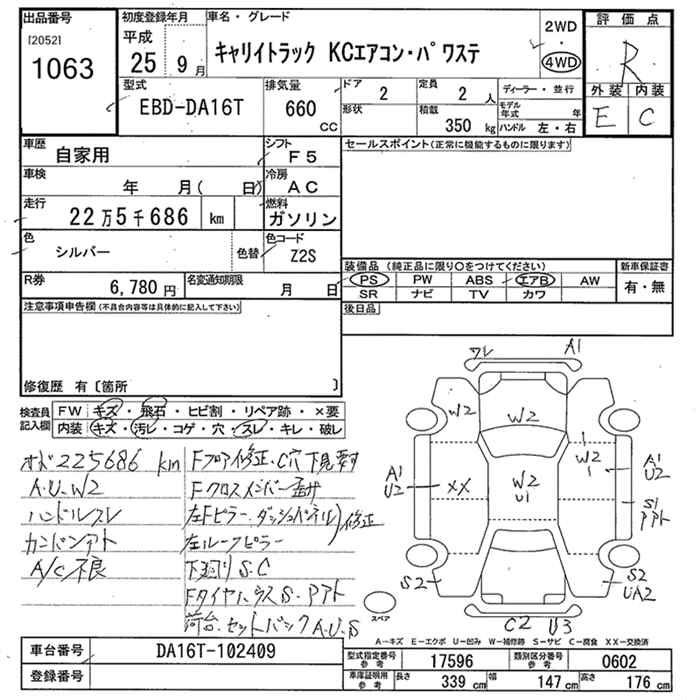 出品番号
[2052]
1063
初度登録年月
平成
25 9 月
車名・グレード
キャリイトラック KCエアコン・パワステ
2WD
・
4WD
評価点
R
外装 内装
E C
型式
EBD-DA16T
排気量
660
cc
ドア
2
形状
定員
2 人
積載
350 kg
ディーラー・並行
モデル年式 年
ハンドル 左・右
車歴
自家用
シフト
F5
車検
年 月( 日)
冷房
AC
走行
22万5千686 km
燃料
ガソリン
色
シルバー
色替
色コード
Z2S
R券
6,780円
名変通知期限
月 日
セールスポイント(正常に機能するものに限ります)
装備品(純正品に限り○をつけてください)
PS PW ABS エアB AW
SR ナビ TV カワ
新車保証書
有・無
後日品
注意事項申告欄(不具合内容等は具体的に記入して下さい)
修復歴 有〔箇所 〕
検査員記入欄
FW キズ・飛石・ヒビ割・リペア跡・×要
内装 キズ・汚レ・コゲ・穴・スレ・キレ・破レ
225686 km
A.U.W2
ハンドルスレ
カンバンアト
A/C不良
Fフロア修正・C穴下見要す
Fクロスメンバー歪サ
左Fピラー・ダッシュパネル)修正
左ルーフピラー
下廻りS.C
FタイヤハウスS・アアト
荷台・セットバックA.U.S
ワレ
A1
W2
W2
W2
1
A1
U2
XX
W2
U1
A1
U2
S1
アアト
S2
S2
UA2
C2
U3
スペア
A-キズ E-エクボ U-凹み W-補修跡 S-サビ C-腐食 XX-交換済
車台番号
DA16T-102409
登録番号
型式指定番号
参考
17596
類別区分番号
参考
0602
車庫証明用
参考
長さ
339 cm
幅
147 cm
高さ
176 cm